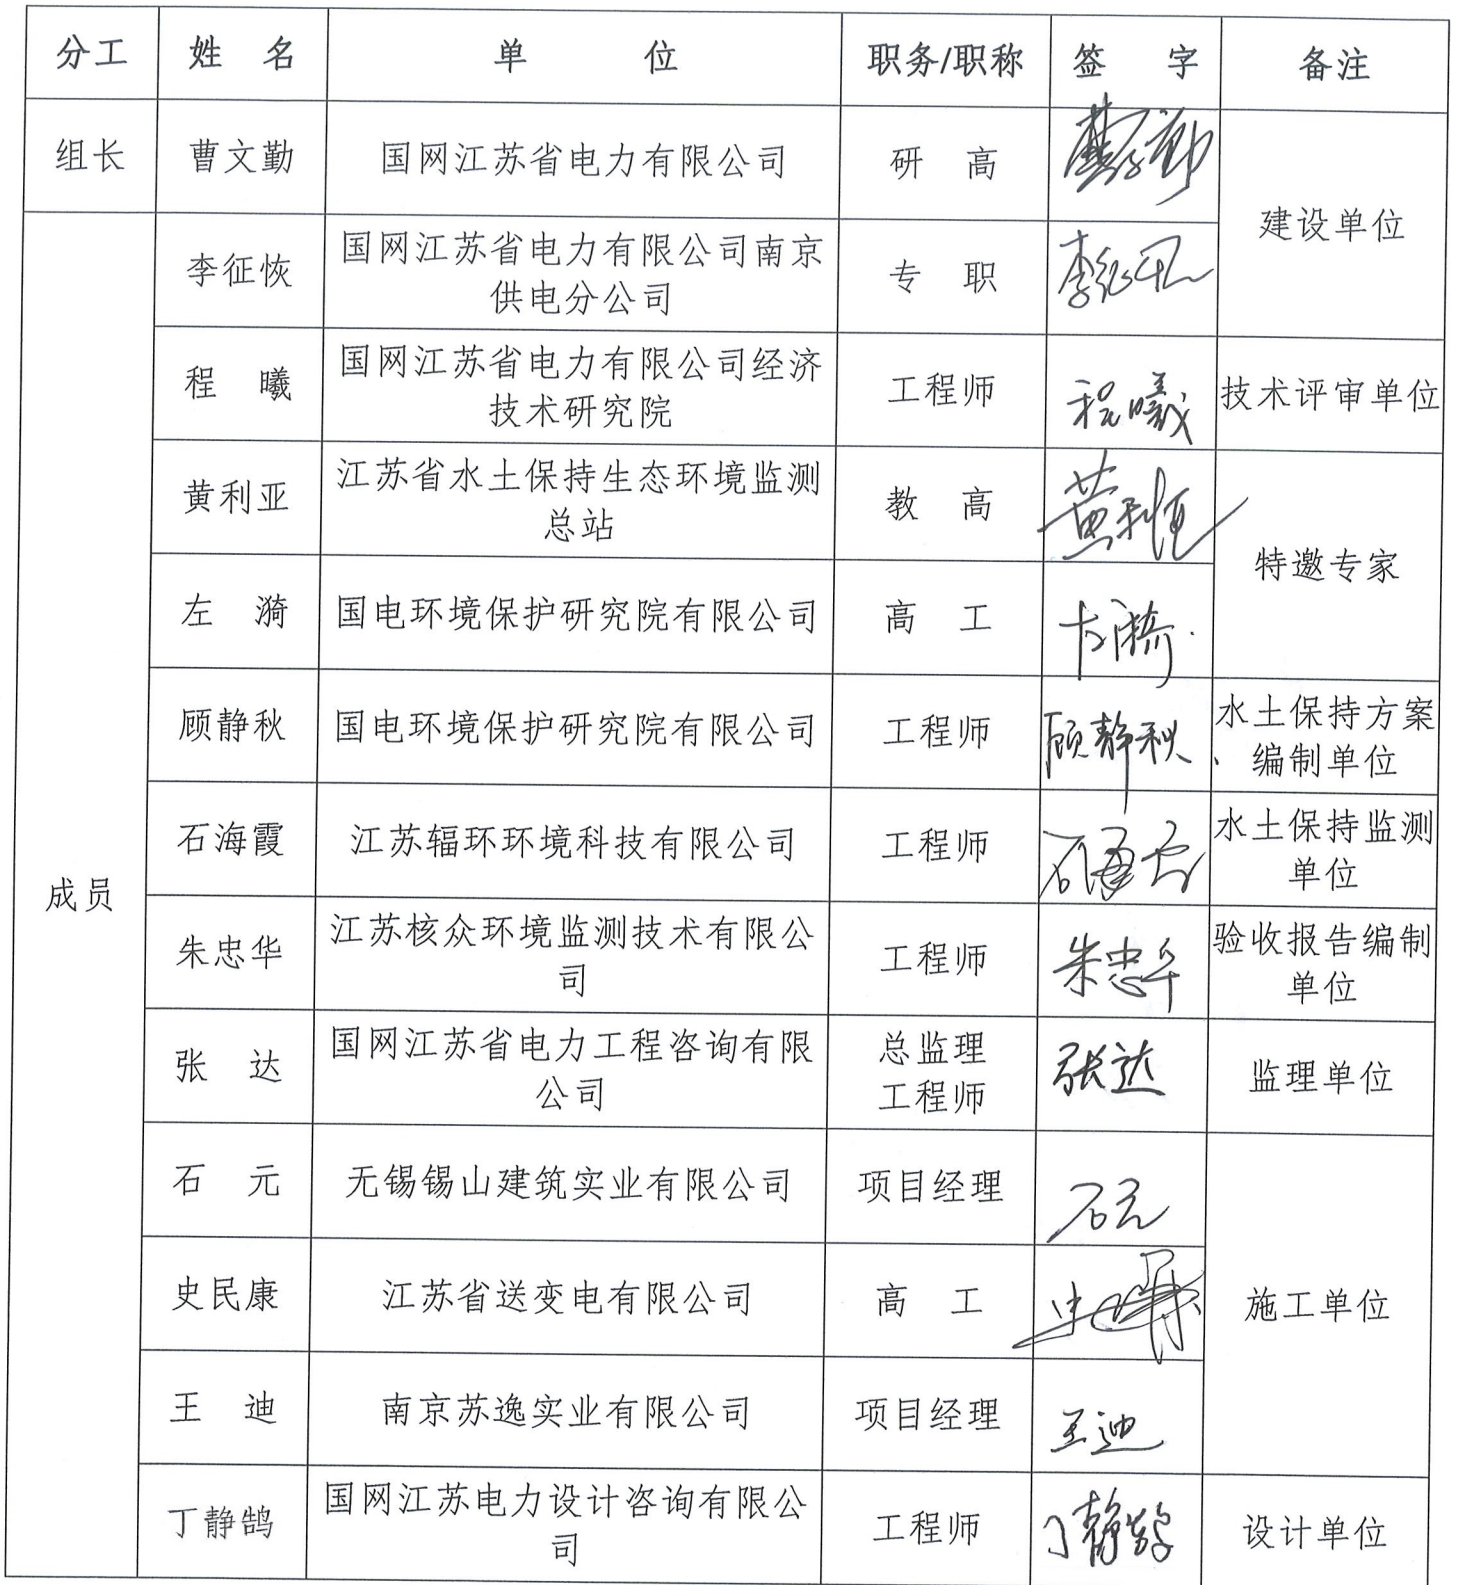 分工 姓 名 单 位 职务/职称 签 字 备注
组长 曹文勤 国网江苏省电力有限公司 研 高 曹文勤 建设单位
成员
李征恢 国网江苏省电力有限公司南京
供电分公司 专 职 李征恢
程 曦 国网江苏省电力有限公司经济
技术研究院 工程师 程曦 技术评审单位
黄利亚 江苏省水土保持生态环境监测
总站 教 高 黄利亚 特邀专家
左 漪 国电环境保护研究院有限公司 高 工 左漪
顾静秋 国电环境保护研究院有限公司 工程师 顾静秋 水土保持方案
编制单位
石海霞 江苏辐环环境科技有限公司 工程师 石海霞 水土保持监测
单位
朱忠华 江苏核众环境监测技术有限公
司 工程师 朱忠华 验收报告编制
单位
张 达 国网江苏省电力工程咨询有限
公司 总监理
工程师 张达 监理单位
石 元 无锡锡山建筑实业有限公司 项目经理 石元 施工单位
史民康 江苏省送变电有限公司 高 工
王 迪 南京苏逸实业有限公司 项目经理 王迪
丁静鹄 国网江苏电力设计咨询有限公
司 工程师 丁静鹄 设计单位